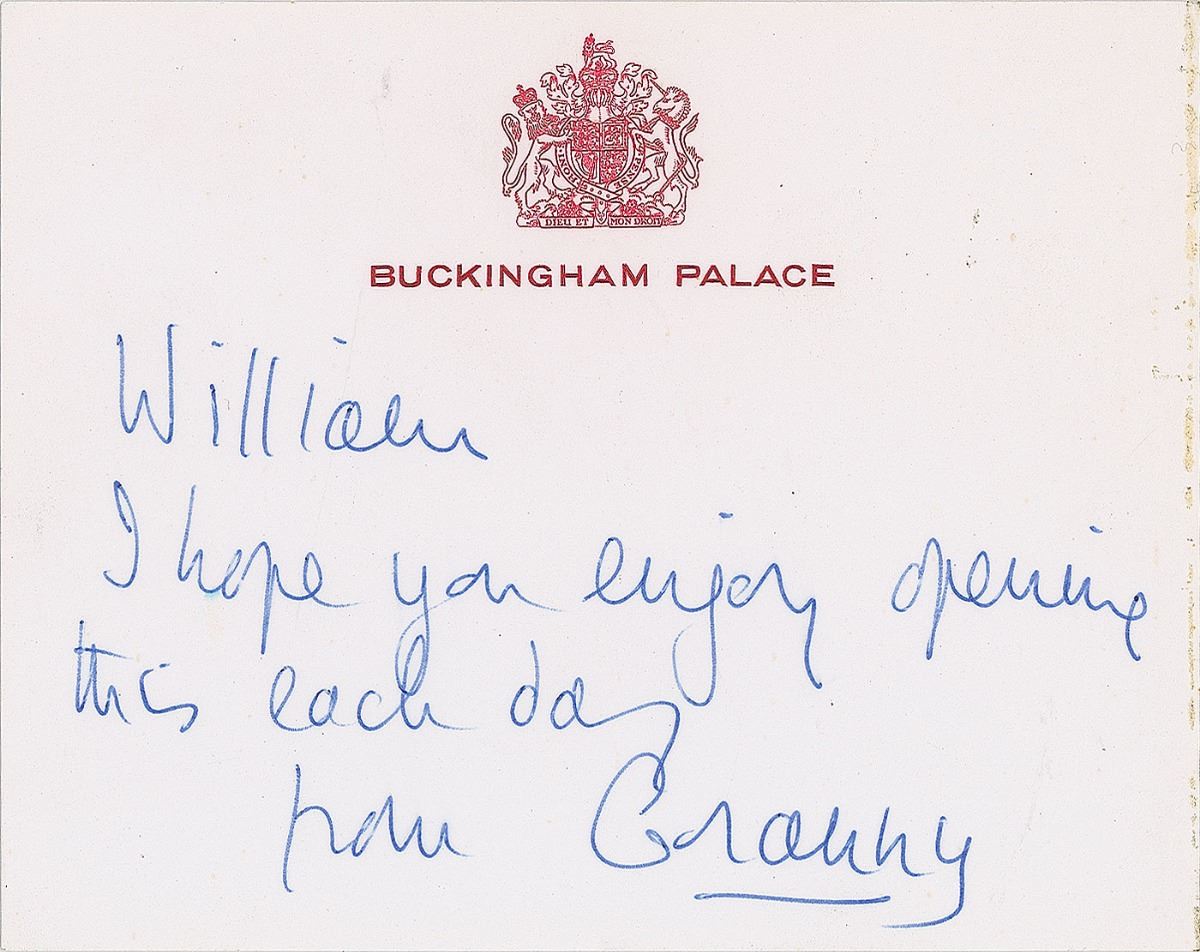 HONI
PENSE
DIEU ET MON DROIT
BUCKINGHAM PALACE
William
I hope you enjoy opening
this each day
from Granny